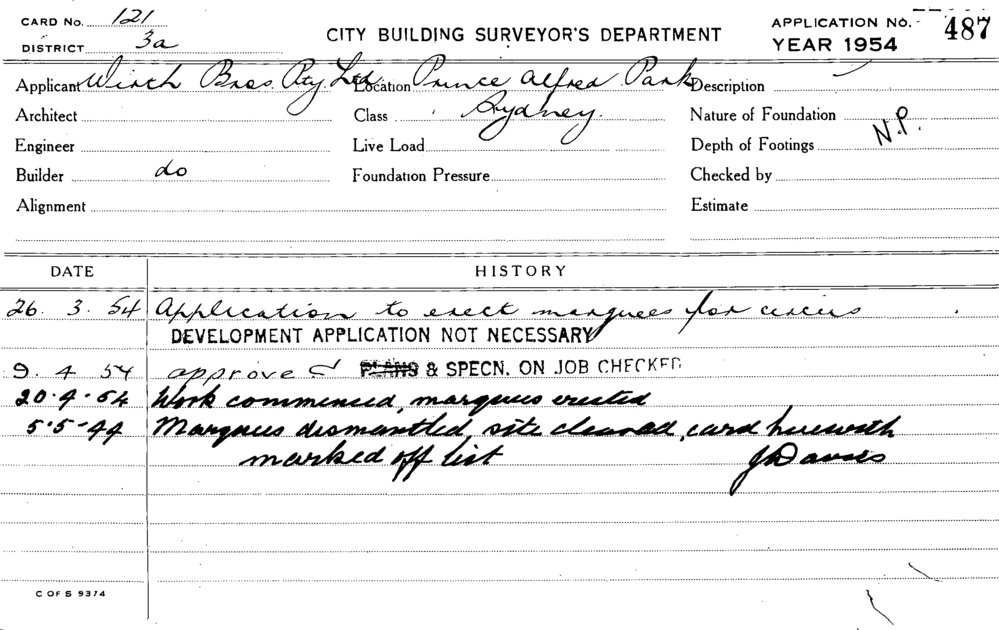 CARD No. 121
DISTRICT 3a
CITY BUILDING SURVEYOR'S DEPARTMENT
APPLICATION No. 487
YEAR 1954
Applicant Wirth Bros. Pty. Ltd. Location Prince Alfred Park Description
Architect Class Sydney. Nature of Foundation N.P.
Engineer Live Load Depth of Footings
Builder do Foundation Pressure Checked by
Alignment Estimate
DATE HISTORY
26. 3. 54 Application to erect marquees for circus
DEVELOPMENT APPLICATION NOT NECESSARY
9. 4 54 approved PLANS & SPECN. ON JOB CHECKED
20.4.54 Work commenced, marquees erected
5.5.44 Marquees dismantled, site cleared, card herewith
marked off list J Davies
C OF S 9374